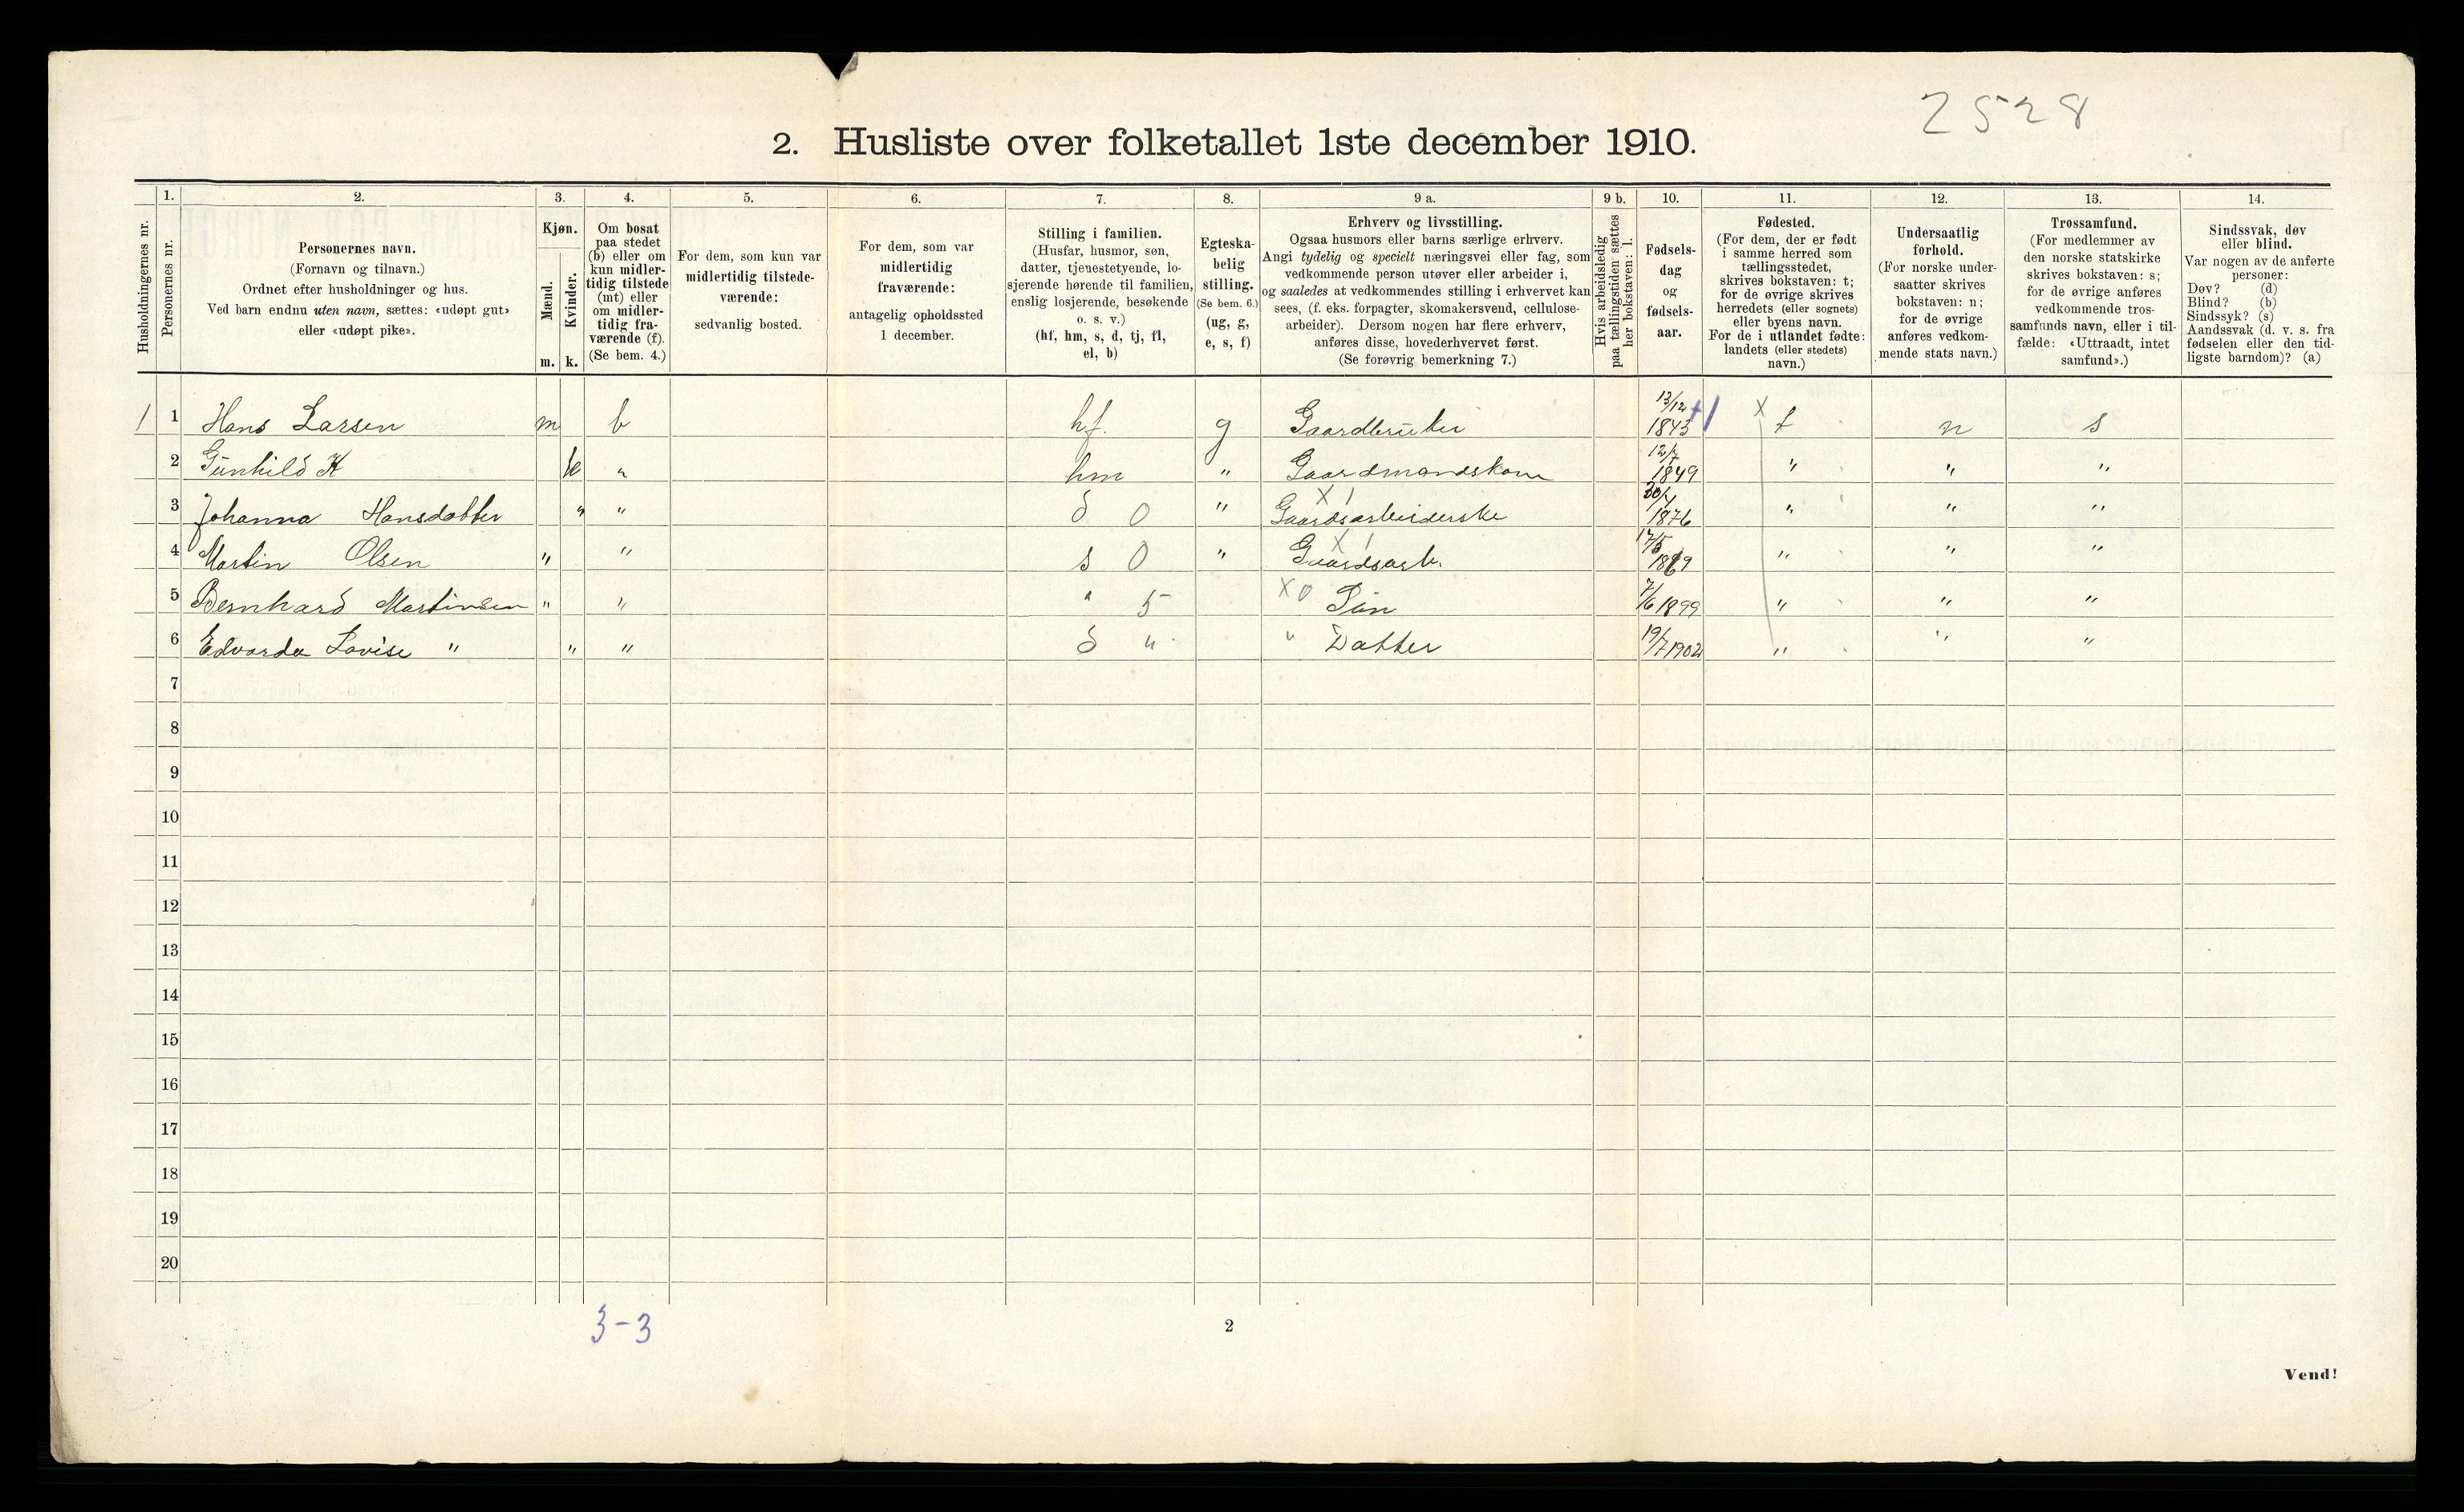 2528
2. Husliste over folketallet 1ste december 1910.
Husholdningernes nr.
1.
Personernes nr.
2.
Personernes navn.
(Fornavn og tilnavn.)
Ordnet efter husholdninger og hus.
Ved barn endnu uten navn, sættes: «udøpt gut»
eller «udøpt pike».
3.
Kjøn.
Mænd.
Kvinder.
m. k.
4.
Om bosat
paa stedet
(b) eller om
kun midler-
tidig tilstede
(mt) eller
om midler-
tidig fra-
værende (f).
(Se bem. 4.)
5.
For dem, som kun var
midlertidig tilstede-
værende:
sedvanlig bosted.
6.
For dem, som var
midlertidig
fraværende:
antagelig opholdssted
1 december.
7.
Stilling i familien.
(Husfar, husmor, søn,
datter, tjenestetyende, lo-
sjerende hørende til familien,
enslig losjerende, besøkende
o. s. v.)
(hf, hm, s, d, tj, fl,
el, b)
8.
Egteska-
belig
stilling.
(Se bem. 6.)
(ug, g,
e, s, f)
9 a.
Erhverv og livsstilling.
Ogsaa husmors eller barns særlige erhverv.
Angi tydelig og specielt næringsvei eller fag, som
vedkommende person utøver eller arbeider i,
og saaledes at vedkommendes stilling i erhvervet kan
sees, (f. eks. forpagter, skomakersvend, cellulose-
arbeider). Dersom nogen har flere erhverv,
anføres disse, hovederhvervet først.
(Se forøvrig bemerkning 7.)
9 b.
Hvis arbeidsledig
paa tællingstiden sættes
her bokstaven: l.
10.
Fødsels-
dag
og
fødsels-
aar.
11.
Fødested.
(For dem, der er født
i samme herred som
tællingsstedet,
skrives bokstaven: t;
for de øvrige skrives
herredets (eller sognets)
eller byens navn.
For de i utlandet fødte:
landets (eller stedets)
navn.)
12.
Undersaatlig
forhold.
(For norske under-
saatter skrives
bokstaven: n;
for de øvrige
anføres vedkom-
mende stats navn.)
13.
Trossamfund.
(For medlemmer av
den norske statskirke
skrives bokstaven: s;
for de øvrige anføres
vedkommende tros-
samfunds navn, eller i til-
fælde: «Uttraadt, intet
samfund».)
14.
Sindssvak, døv
eller blind.
Var nogen av de anførte
personer:
Døv? (d)
Blind? (b)
Sindssyk? (s)
Aandssvak (d. v. s. fra
fødselen eller den tid-
ligste barndom)? (a)
1 1 Hans Larsen m b hf. g Gaardbruker 13/12 1843 x t n s
2 Gunhild K k " hm " Gaardmandskone 12/7 1849 " " "
3 Johanna Hansdatter " " d 0 " x 1 Gaardsarbeiderske 1876 " " "
4 Martin Olsen " " s 0 " x 1 Gaardsarb. 17/5 1869 " " "
5 Bernhard Martinsen " " " 5 x 0 Sön 7/6 1899 " " "
6 Edvarda Lovise " " " d " " Datter 19/7 1902 " " "
7
8
9
10
11
12
13
14
15
16
17
18
19
20
3-3
2
Vend!